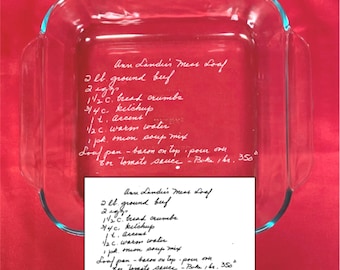 Ann Landers's Meat Loaf
2 lb. ground beef
2 eggs
1 1/2 c. bread crumbs
3/4 c. Ketchup
1 t. Accent
1/2 c warm water
1 pk. onion soup mix
Loaf pan - bacon on top, pour over
8 oz tomato sauce - Bake 1 hr. 350°
Ann Landers's Meat Loaf
2 lb. ground beef
2 eggs
1 1/2 c. bread crumbs
3/4 c. Ketchup
1 t. Accent
1/2 c warm water
1 pk. onion soup mix
Loaf pan - bacon on top, pour over
8 oz tomato sauce - Bake 1 hr. 350°